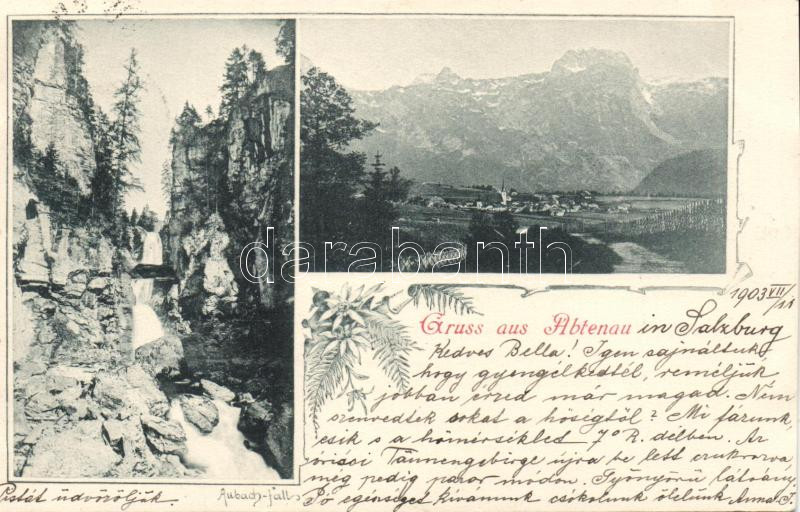 Gruss aus Abtenau in Salzburg
1903 VII/11
Kedves Bella! Igen sajnáltuk
hogy gyengélkedtél, reméljük
jobban érzed már magad. Nem
szenvedtek sokat a hőségtől? Mi fázunk,
csik s a hőmérséklet 7°R. délben. Az
óriási Tännengebirge újra be lett czukrozva
még pedig pazar módon. Gyönyörű látvány
Jó egészséget kívánunk csókolunk ölelünk Anna J.
Pistát üdvözöljük.
Aubach-falls
darabanth